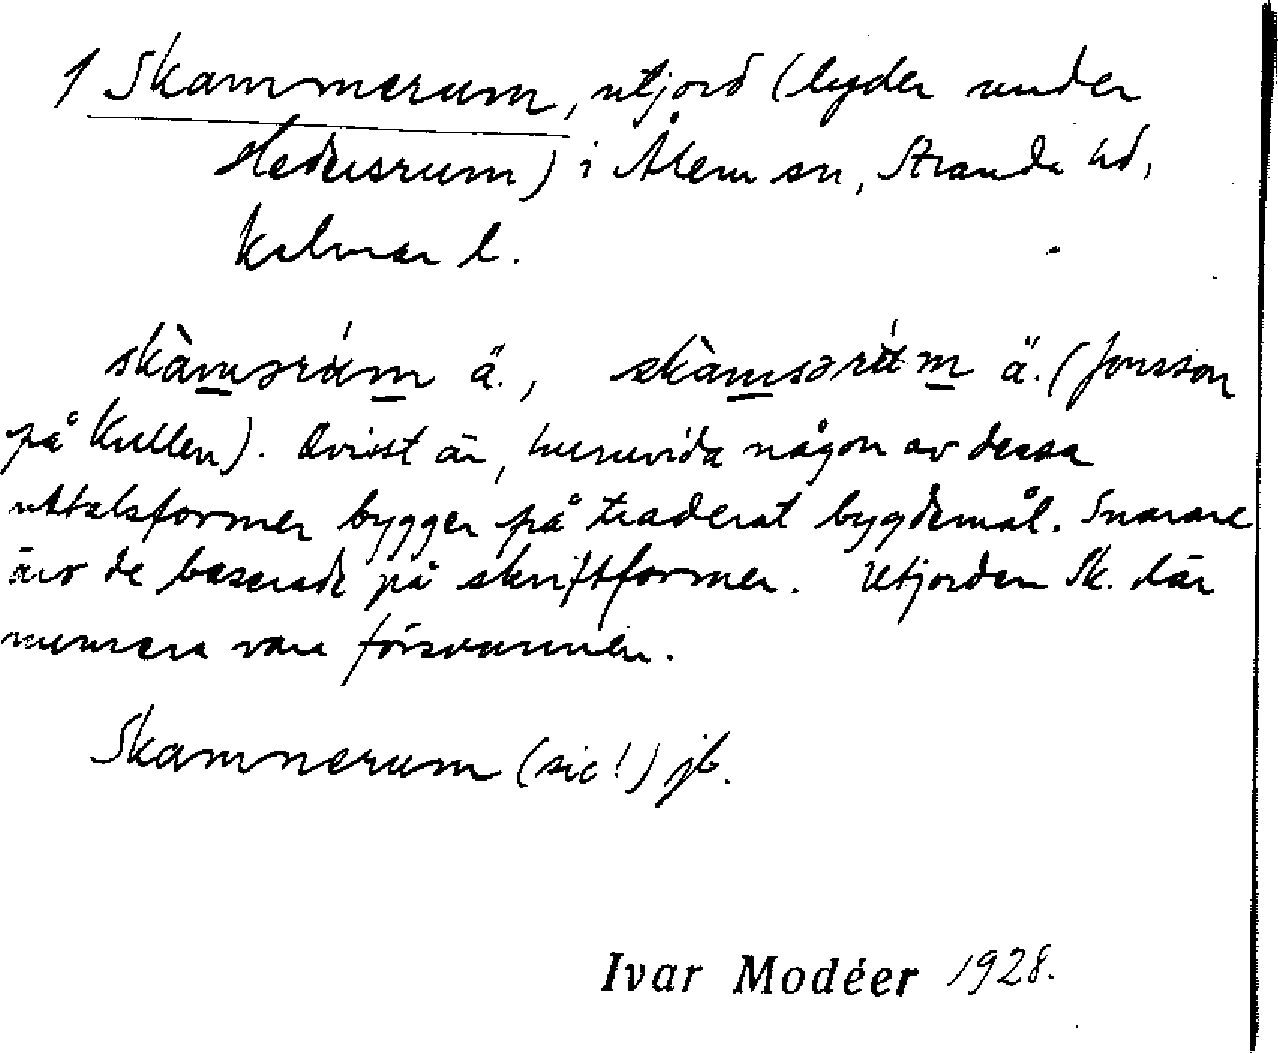 1 Skammerum, utjord (lyder under
Hedersrum) i Ålem sn, Stranda hd,
Kalmar l.
skàmərúm ä., skàmsərúm ä. (Jonsson
på Kullen). Ovisst är, huruvida någon av dessa
uttalsformer bygger på traderat bygdemål. Snarare
äro de baserade på skriftformer. Utjorden Sk. lär
numera vara försvunnen.
Skamnerum (sic!) jb.
Ivar Modéer 1928.